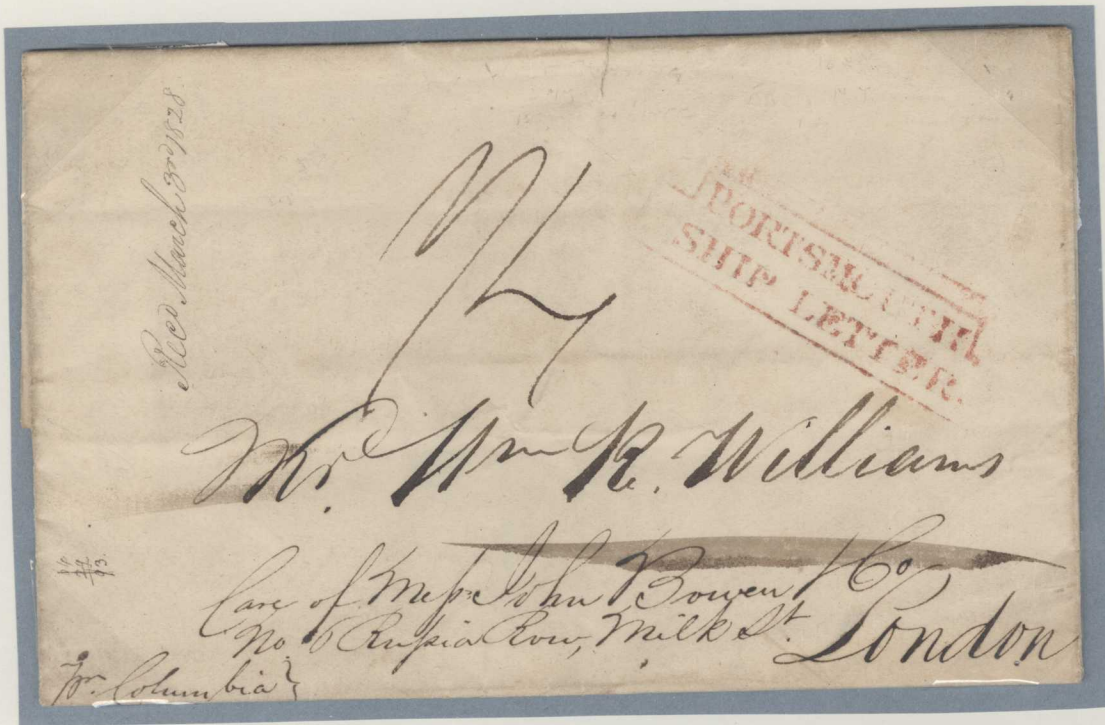 Recd March 3rd 1828.
PORTSMOUTH
SHIP LETTER
Mr. Wm R. Williams
Care of Messrs John Bowen & Co
No. 6 Russia Row, Milk St. London
Pr. Columbia